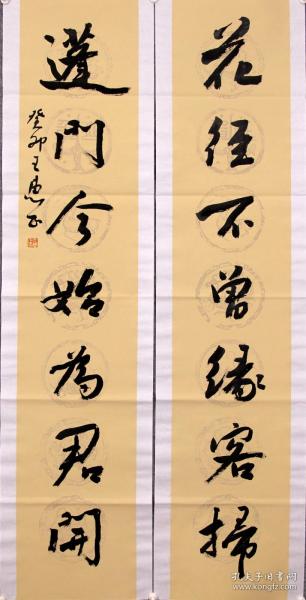 花徑不曾緣客掃
蓬門今始為君開
癸卯王
孔夫子旧书网
www.kongfz.com